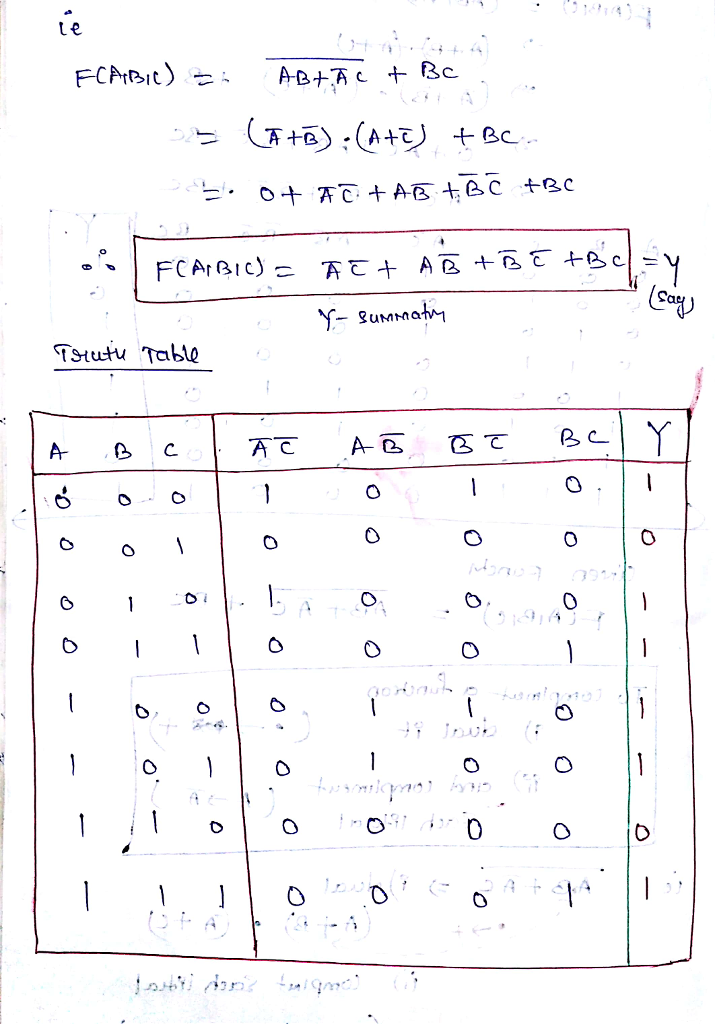 ie
F(A,B,C) = \overline{AB+\overline{A}C} + BC
= (\overline{A}+\overline{B})·(A+\overline{C}) + BC
= 0 + \overline{A}\overline{C} + A\overline{B} + \overline{B}\overline{C} + BC
∴ F(A,B,C) = \overline{A}\overline{C} + A\overline{B} + \overline{B}\overline{C} + BC = Y (say)
Y- summatn
Truth Table
A B C \overline{A}\overline{C} A\overline{B} \overline{B}\overline{C} BC Y
0 0 0 1 0 1 0 1
0 0 1 0 0 0 0 0
0 1 0 1 0 0 0 1
0 1 1 0 0 0 1 1
1 0 0 0 1 1 0 1
1 0 1 0 1 0 0 1
1 1 0 0 0 0 0 0
1 1 1 0 0 0 1 1